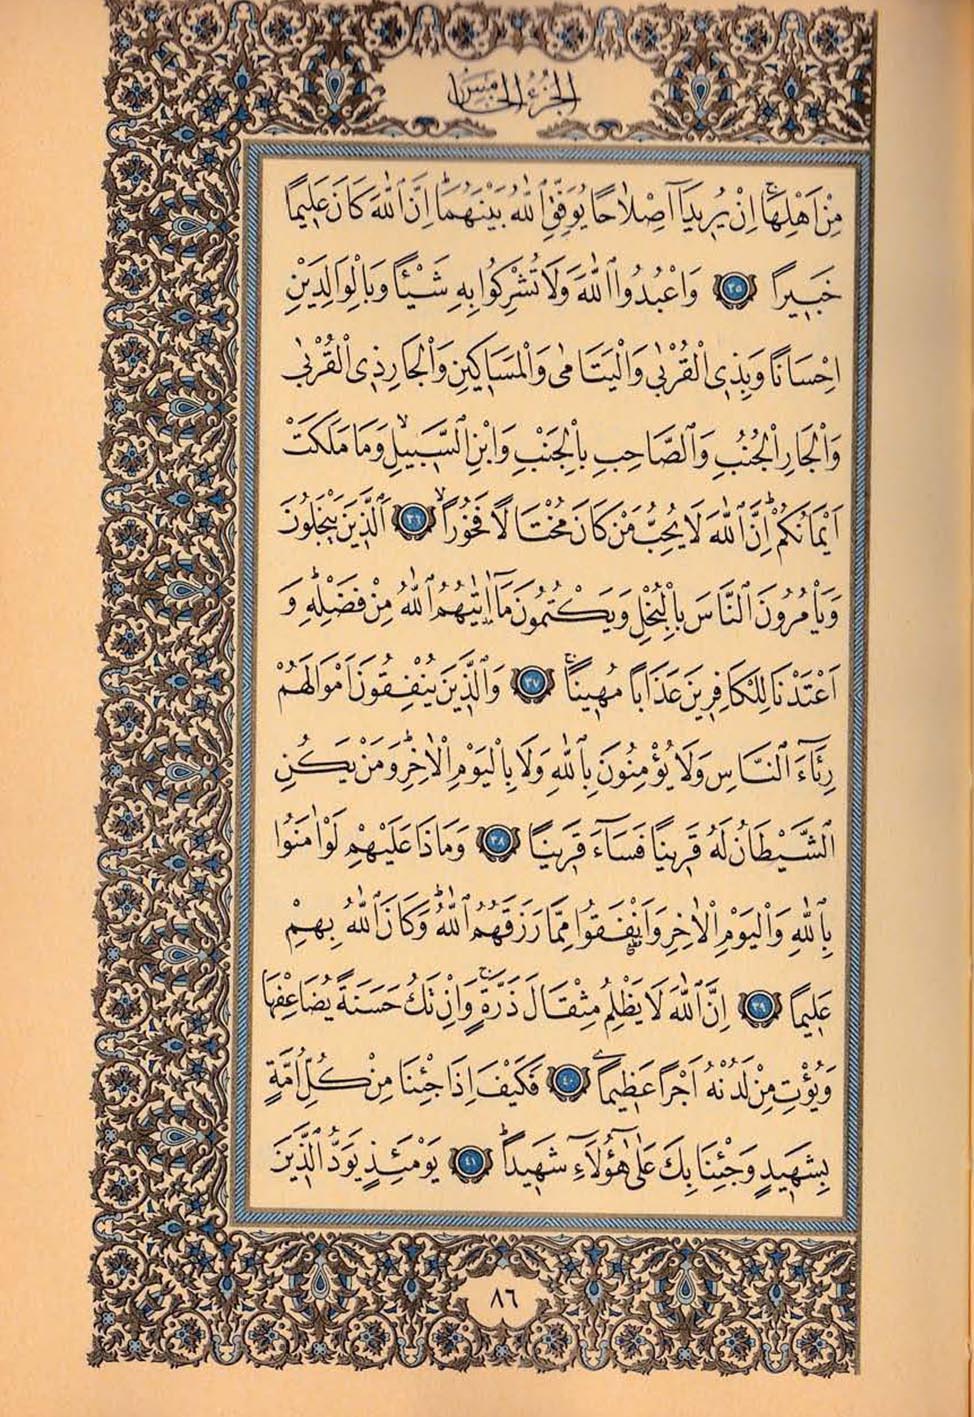 الجزء الخامس
مِنْ اَهْلِهَاۚ اِنْ يُرٖيدَٓا اِصْلَاحًا يُوَفِّقِ ٱللّٰهُ بَيْنَهُمَاؕ اِنَّ ٱللّٰهَ كَانَ عَلٖيمًا
خَبٖيرًا ﴿٣٥﴾ وَاعْبُدُوا ٱللّٰهَ وَلَا تُشْرِكُوا بِهٖ شَيْـًٔا وَبِالْوَالِدَيْنِ
اِحْسَانًا وَبِذِى الْقُرْبٰى وَالْيَتَامٰى وَالْمَسَاكٖينِ وَالْجَارِ ذِى الْقُرْبٰى
وَالْجَارِ الْجُنُبِ وَٱلصَّاحِبِ بِالْجَنْبِ وَابْنِ ٱلسَّبٖيلِۙ وَمَا مَلَكَتْ
اَيْمَانُكُمْؕ اِنَّ ٱللّٰهَ لَا يُحِبُّ مَنْ كَانَ مُخْتَالًا فَخُورًاۙ ﴿٣٦﴾ اَلَّذٖينَ يَبْخَلُونَ
وَيَأْمُرُونَ ٱلنَّاسَ بِالْبُخْلِ وَيَكْتُمُونَ مَٓا اٰتٰيهُمُ ٱللّٰهُ مِنْ فَضْلِهٖؕ وَ
اَعْتَدْنَا لِلْكَافِرٖينَ عَذَابًا مُهٖينًاۚ ﴿٣٧﴾ وَٱلَّذٖينَ يُنْفِقُونَ اَمْوَالَهُمْ
رِئَٓاءَ ٱلنَّاسِ وَلَا يُؤْمِنُونَ بِٱللّٰهِ وَلَا بِالْيَوْمِ الْاٰخِرِؕ وَمَنْ يَكُنِ
ٱلشَّيْطَانُ لَهُ قَرٖينًا فَسَٓاءَ قَرٖينًا ﴿٣٨﴾ وَمَاذَا عَلَيْهِمْ لَوْ اٰمَنُوا
بِٱللّٰهِ وَالْيَوْمِ الْاٰخِرِ وَاَنْفَقُوا مِمَّا رَزَقَهُمُ ٱللّٰهُؕ وَكَانَ ٱللّٰهُ بِهِمْ
عَلٖيمًا ﴿٣٩﴾ اِنَّ ٱللّٰهَ لَا يَظْلِمُ مِثْقَالَ ذَرَّةٍۚ وَاِنْ تَكُ حَسَنَةً يُضَاعِفْهَا
وَيُؤْتِ مِنْ لَدُنْهُ اَجْرًا عَظٖيمًا ﴿٤٠﴾ فَكَيْفَ اِذَا جِئْنَا مِنْ كُلِّ اُمَّةٍ
بِشَهٖيدٍ وَجِئْنَا بِكَ عَلٰى هٰٓؤُلَٓاءِ شَهٖيدًاؕ ﴿٤١﴾ يَوْمَئِذٍ يَوَدُّ ٱلَّذٖينَ
٨٦